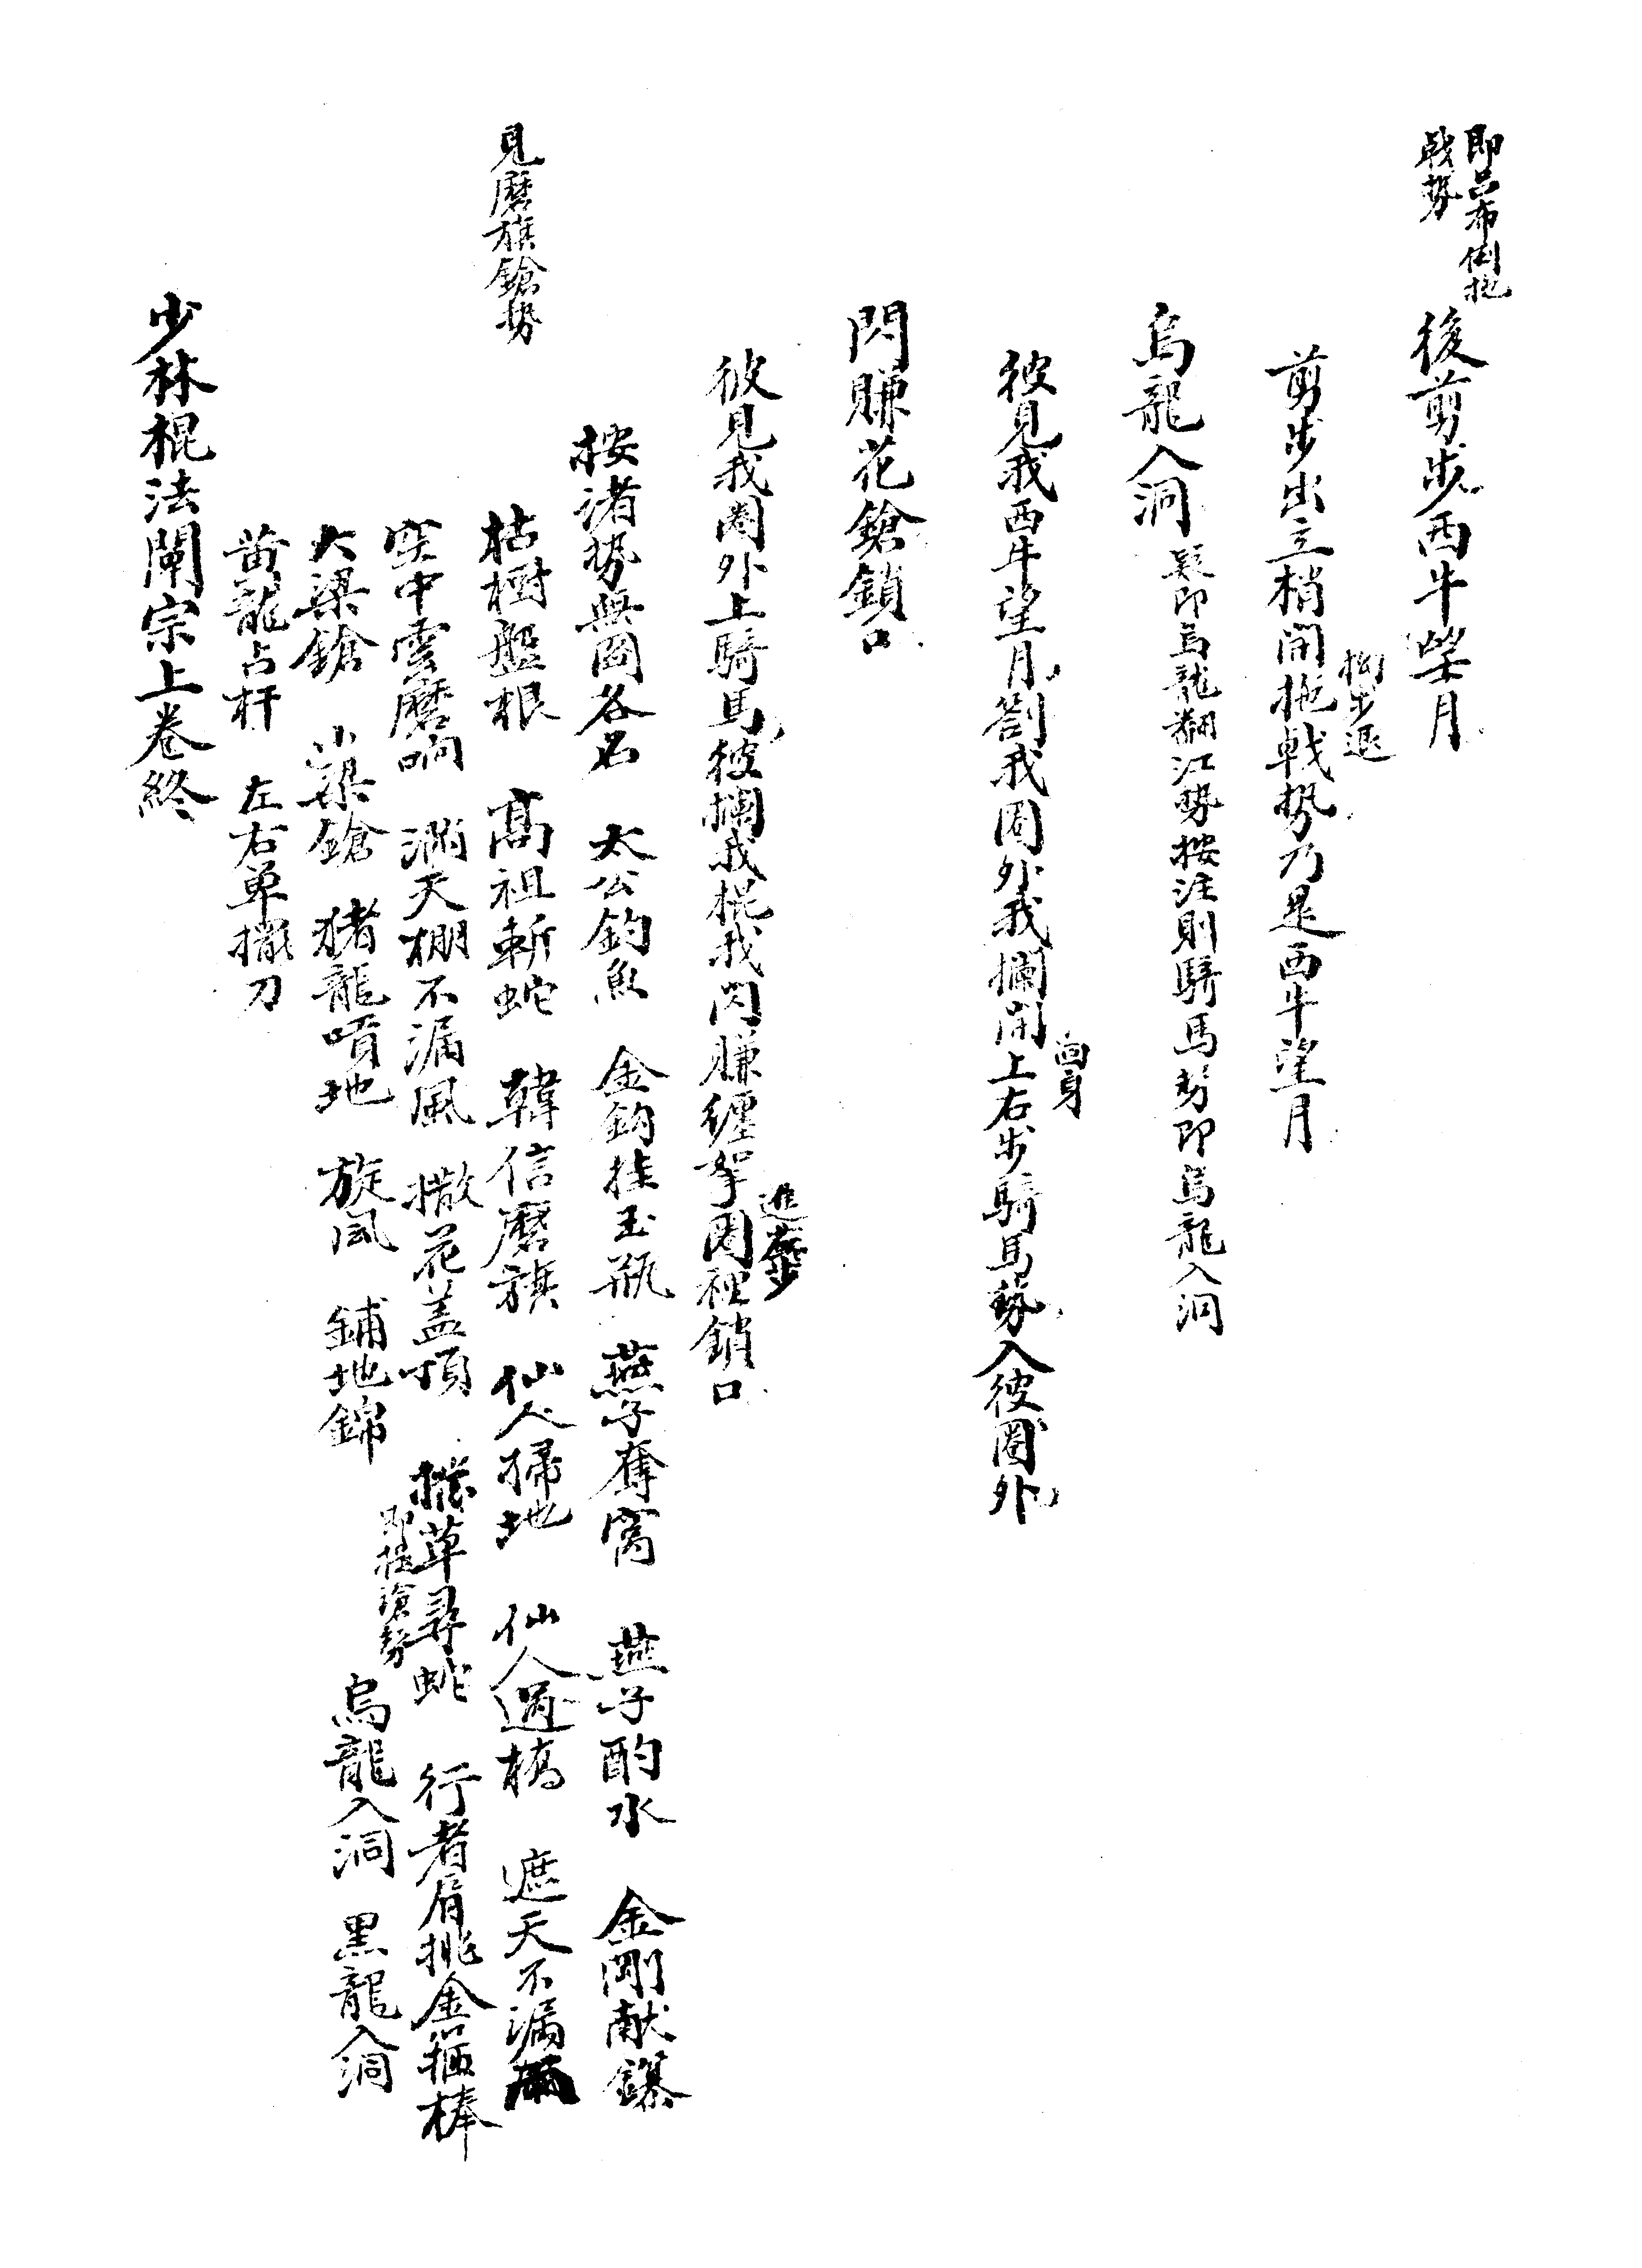 即呂布倒拖
戟势
後剪步西牛望月
拗步退
剪步出立梢開拖戟势乃是西牛望月
烏龍入洞 疑即烏龍翻江势按注則騎馬势即烏龍入洞
彼見我西牛望月劄我圈外我攔開上右步騎馬势入彼圈外
回身
閃賺花鎗鎖口
彼見我圈外上騎馬彼攔我棍我閃賺纏拏圈裡鎖口
進步
按诸势無圖各名 太公釣魚 金鈎挂玉瓶 燕子奪窩 燕子酌水 金剛献鑽
見磨旗鎗势
枯樹盤根 高祖斬蛇 韓信磨旗 仙人掃地 仙人過橋 遮天不漏雨
空中雲磨响 满天棚不漏風 撒花盖頂 撥草尋蛇 行者肩挑金箍棒
即挂鎗势
大梁鎗 小梁鎗 猪龍噴地 旋風 鋪地錦 烏龍入洞 黑龍入洞
黄龍占杆 左右单撒刀
少林棍法闡宗上卷終